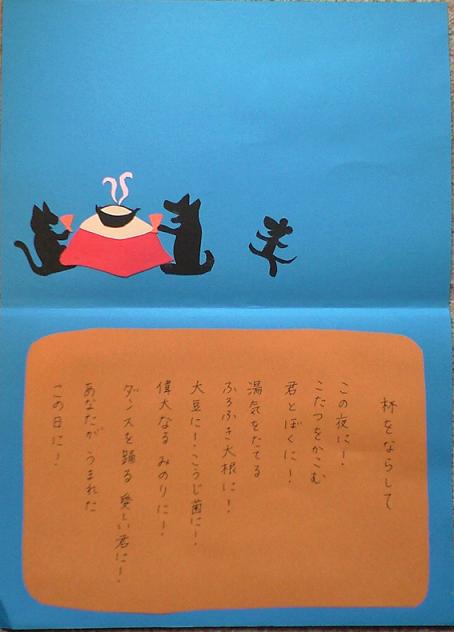 杯をならして
この夜に！
こたつをかこむ
君とぼくに！
湯気をたてる
ふろふき大根に！
大豆に！こうじ菌に！
偉大なる みのりに！
ダンスを踊る 愛しい君に！
あなたが うまれた
この日に！